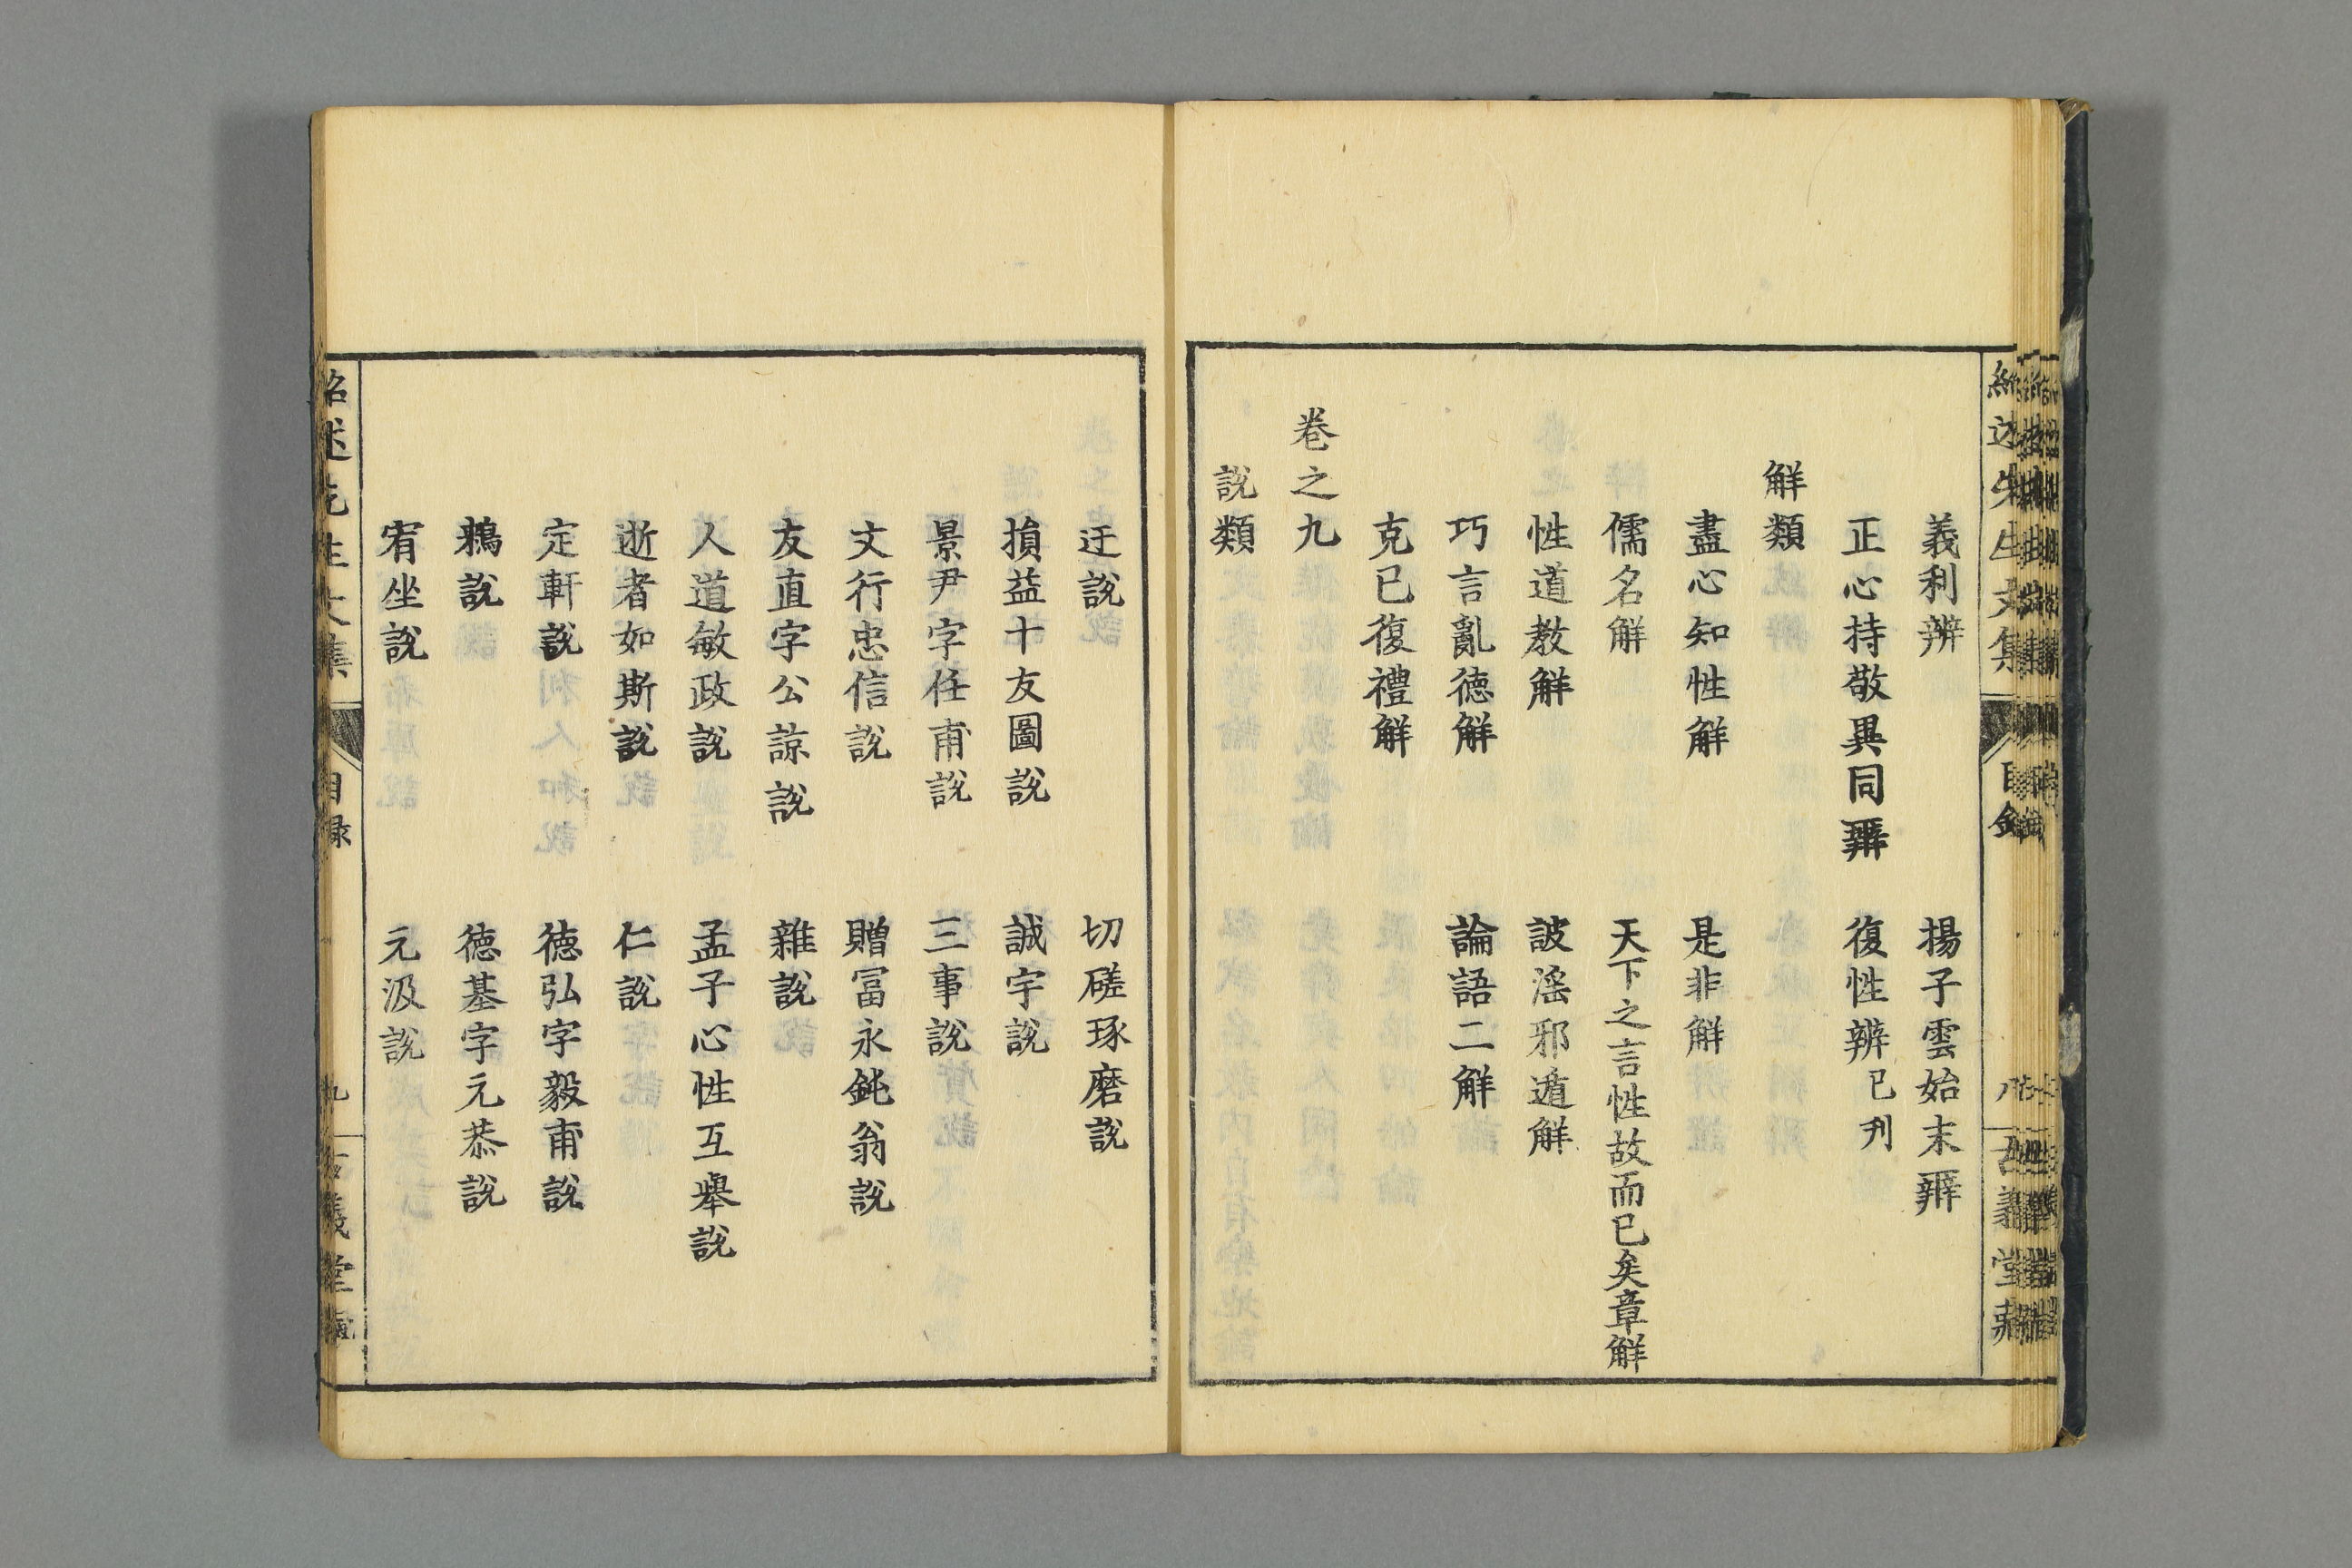 義利辨　揚子雲始末辨
正心持敬異同辨　復性辨已刋
解類
盡心知性解　是非解
儒名解　天下之言性故而已矣章解
性道教解　詖淫邪遁解
巧言亂德解　論語二解
克已復禮解
卷之九
說類
迂說　切磋琢磨說
損益十友圖說　誠宇說
景尹字任甫說　三事說
文行忠信說　贈冨永鈍翁說
友直字公諒說　雜說
人道敏政說　孟子心性互舉說
逝者如斯說　仁說
定軒說　德弘字毅甫說
鶇說　德基字元恭說
宥坐說　元汲說
紹述先生文集　目録　九　古義堂藏